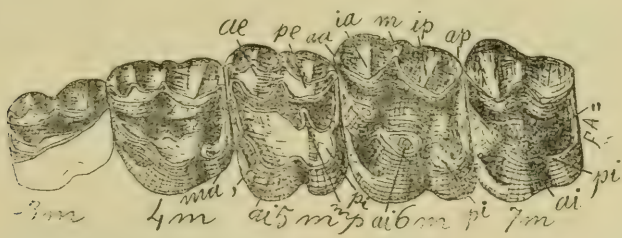 ae pe aa ia m ip ap
FA"
3m 4m ma, ai 5m mp pi ai 6m pi 7m ai pi